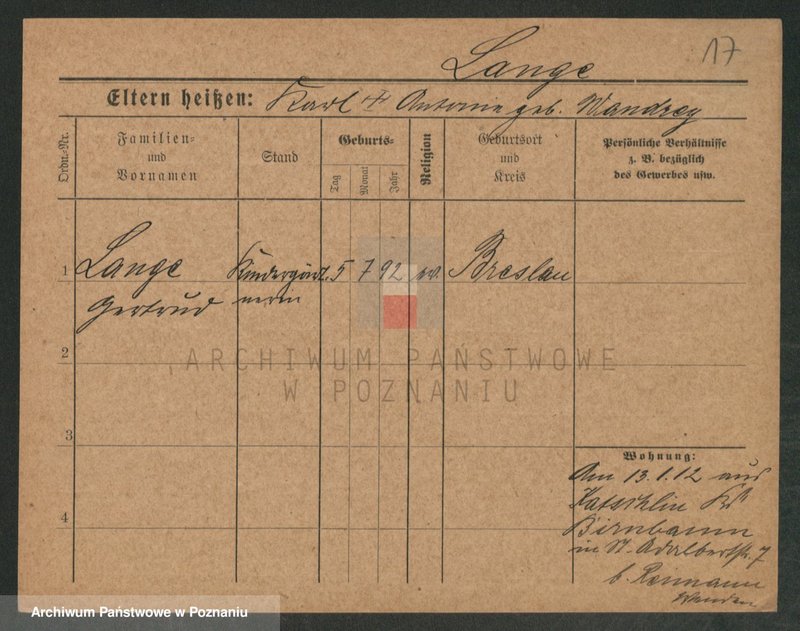 17
Lange
Eltern heißen: Karl + Antonie geb. Wandrey
Ordn.-Nr.
Familien-
und
Vornamen
Stand
Geburts-
Tag
Monat
Jahr
Religion
Geburtsort
und
Kreis
Persönliche Verhältnisse
z. B. bezüglich
des Gewerbes usw.
1 Lange Kindergärt. 5 7 92 ev. Breslau
Gertrud nerin
2
ARCHIWUM PAŃSTWOWE
W POZNANIU
3
Wohnung:
Am 13.1.12 aus
Katschlin Krs
Birnbaum
in St. Adalbertstr. 7
4
b. Reimann
Archiwum Państwowe w Poznaniu